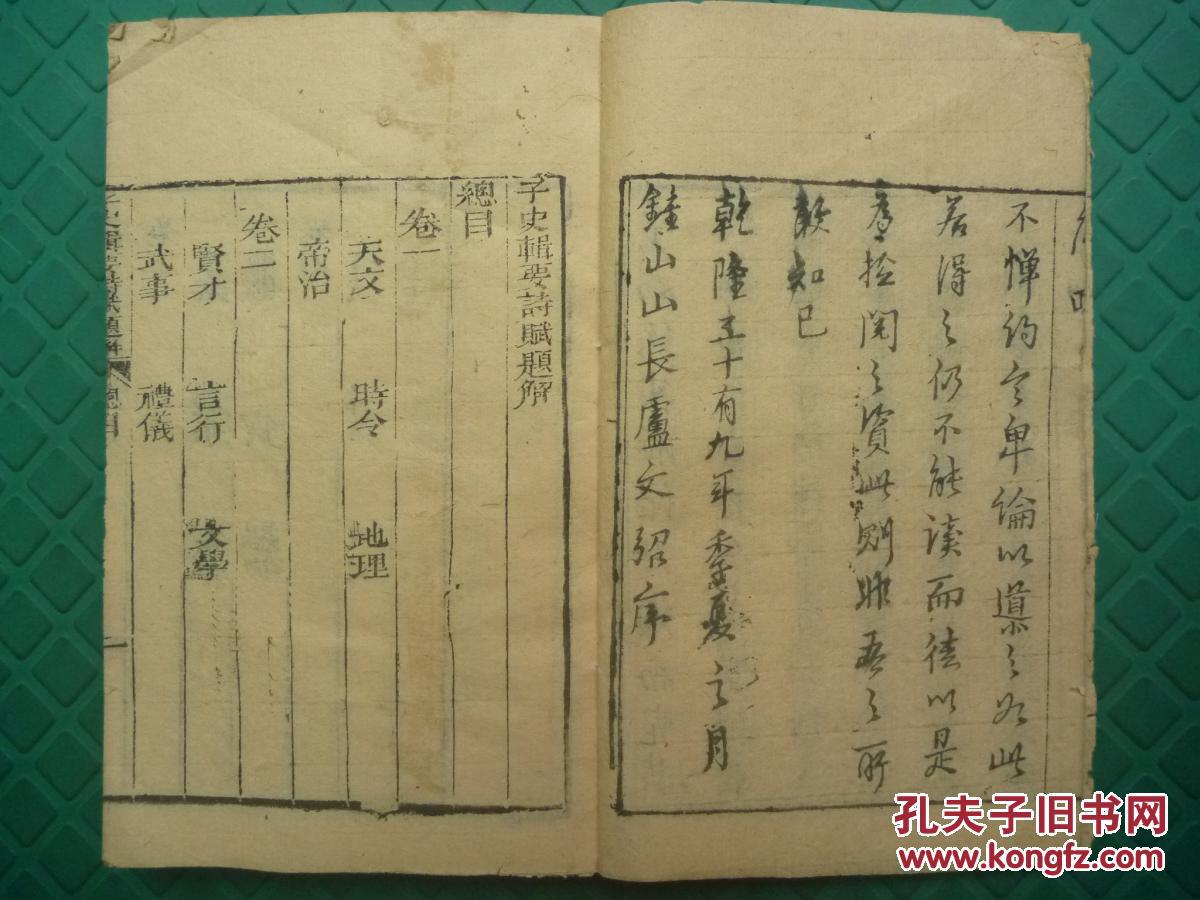 不憚約言卑論以導之如此
若得之仍不能讀而徒以是
為撿閱之資此則非吾之所
敢知已
乾隆五十有九年季夏之月
鍾山山長盧文弨序
子史輯要詩賦題解
總目
卷一
天文 時令 地理
帝治
卷二
賢才 言行 文學
武事 禮儀
子史輯要詩賦題解 總目 一
孔夫子旧书网
www.kongfz.com